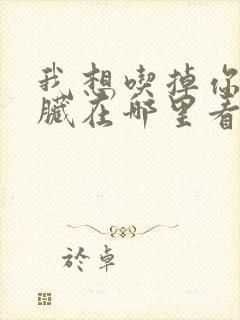 我想喫掉你
臟在哪里看
於卓